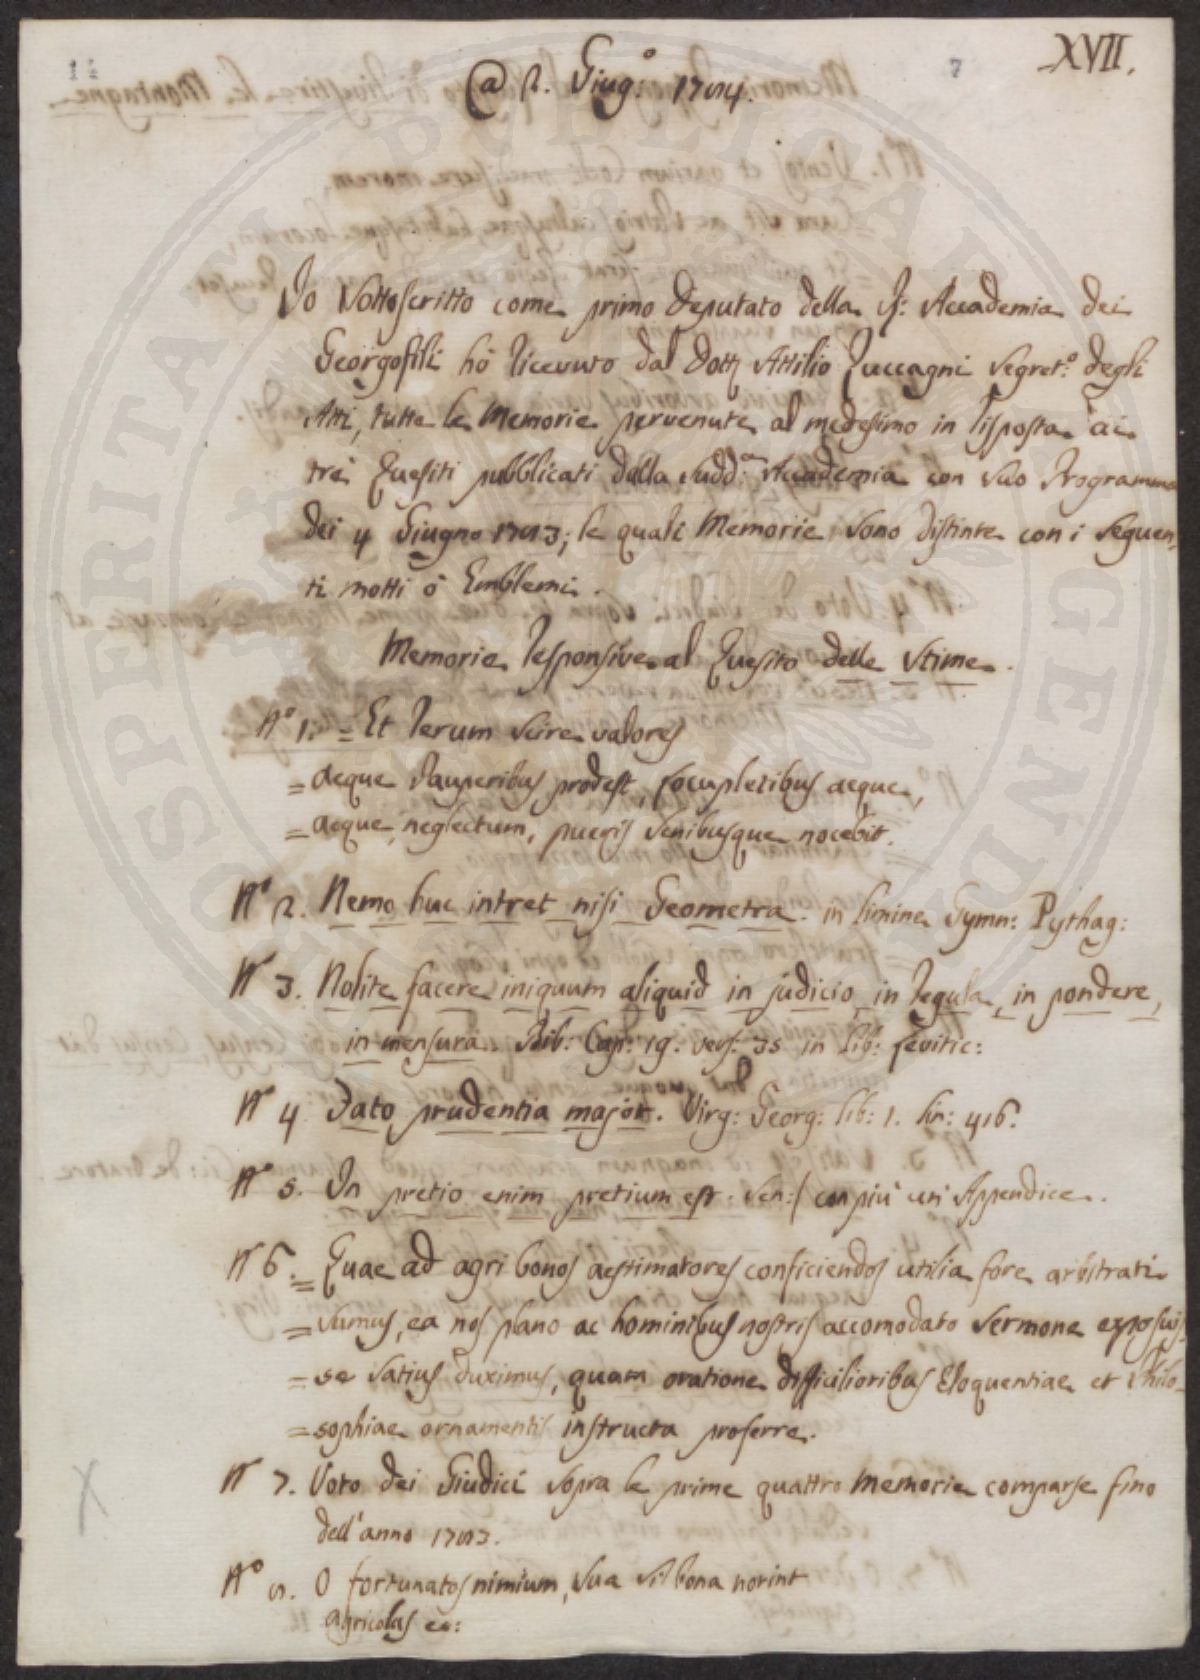 XVII.
7
@ 2. Giug.º 1784.
Io Sottoscritto come primo Deputato della R: Accademia dei
Georgofili hò ricevuto dal Dott Attilio Zuccagni Segret.º degli
Atti, tutte le Memorie pervenute al medesimo in risposta ai
trè Quesiti pubblicati dalla Sudd.a Accademia con Suo Programma
dei 4 Giugno 1783; le quali Memorie Sono distinte con i Seguen,
ti motti ò Emblemi.
Memorie responsive al Quesito delle Stime.
Nº 1. = Et rerum Scire valores
= aeque Pauperibus prodest, locupletibus aeque,
= aeque neglectum, pueris Senibusque nocebit.
Nº 2. Nemo huc intret nisi Geometra. in limine Gymn: Pythag:
Nº 3. Nolite facere iniquum aliquid in judicio, in regula, in pondere,
in mensura. Bib: Cap: 19. vers: 35 in Lib: Levitic:
Nº 4 Fato prudentia major. Virg: Georg: lib: 1. lin: 416.
Nº 5. In pretio enim pretium est. Sen:/ con più un' Appendice.
Nº 6. = Quae ad agri bonos aestimatores conficiendos utilia fore arbitrati
= Sumus, ea nos plano ac hominibus nostris accomodato Sermone exposuis,
= se Satius duximus, quam oratione difficilioribus Eloquentiae et Philo-
= sophiae ornamentis instructa proferre.
Nº 7. Voto dei Giudici Sopra le prime quattro Memorie comparse fino
dell'anno 1783.
Nº 8. O fortunatos nimium, Sua Si bona norint
agricolas ec: